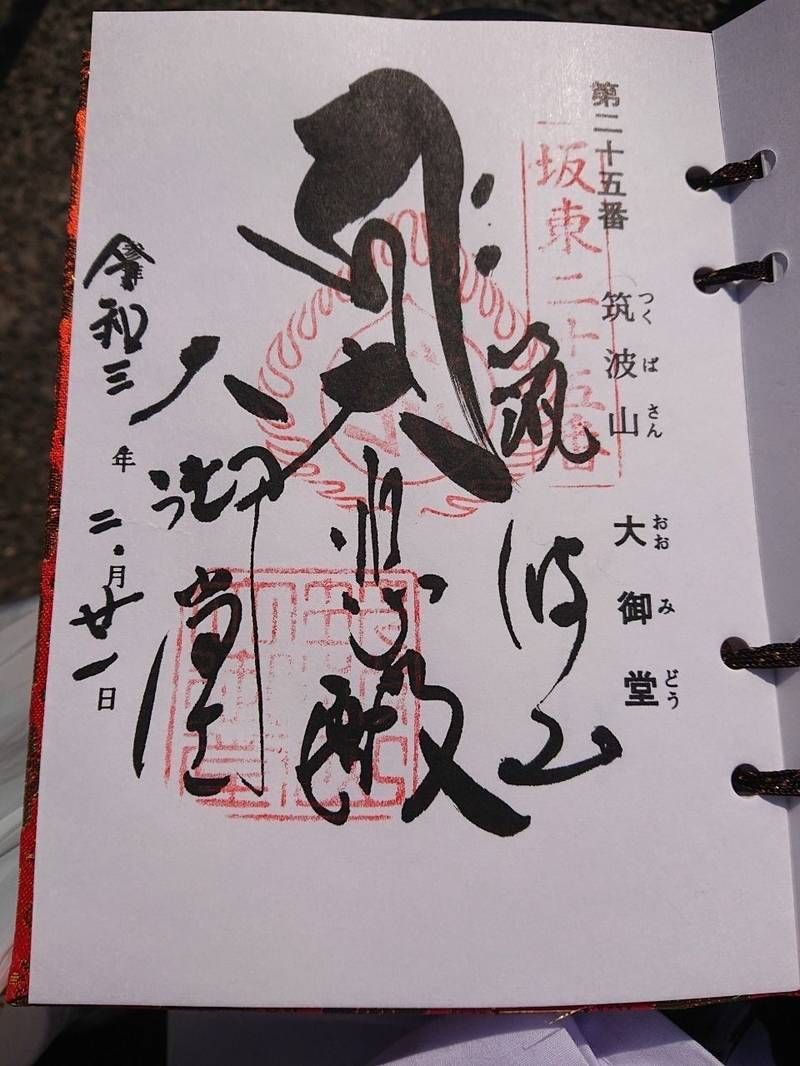 第二十五番 筑波山 大御堂
つくばさん おおみどう
坂東二十五番
筑波山
大悲殿
大御堂
令和三年二月廿一日